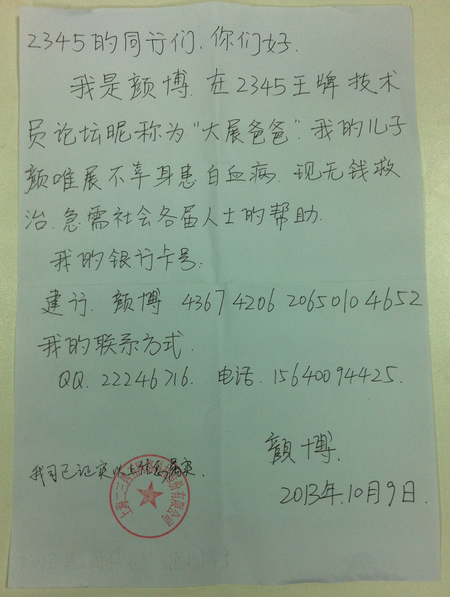 2345的同行们.你们好.
我是颜博.在2345王牌技术
员论坛昵称为“大展爸爸”.我的儿子
颜唯展不幸身患白血病.现无钱救
治.急需社会各届人士的帮助.
我的银行卡号:
建行.颜博 4367 4206 2065 0104652
我的联系方式.
QQ.22246716. 电话.15640094425.
颜博.
2013年.10月9日.
我司已证实以上信息属实.
上海二三四五 股份有限公司